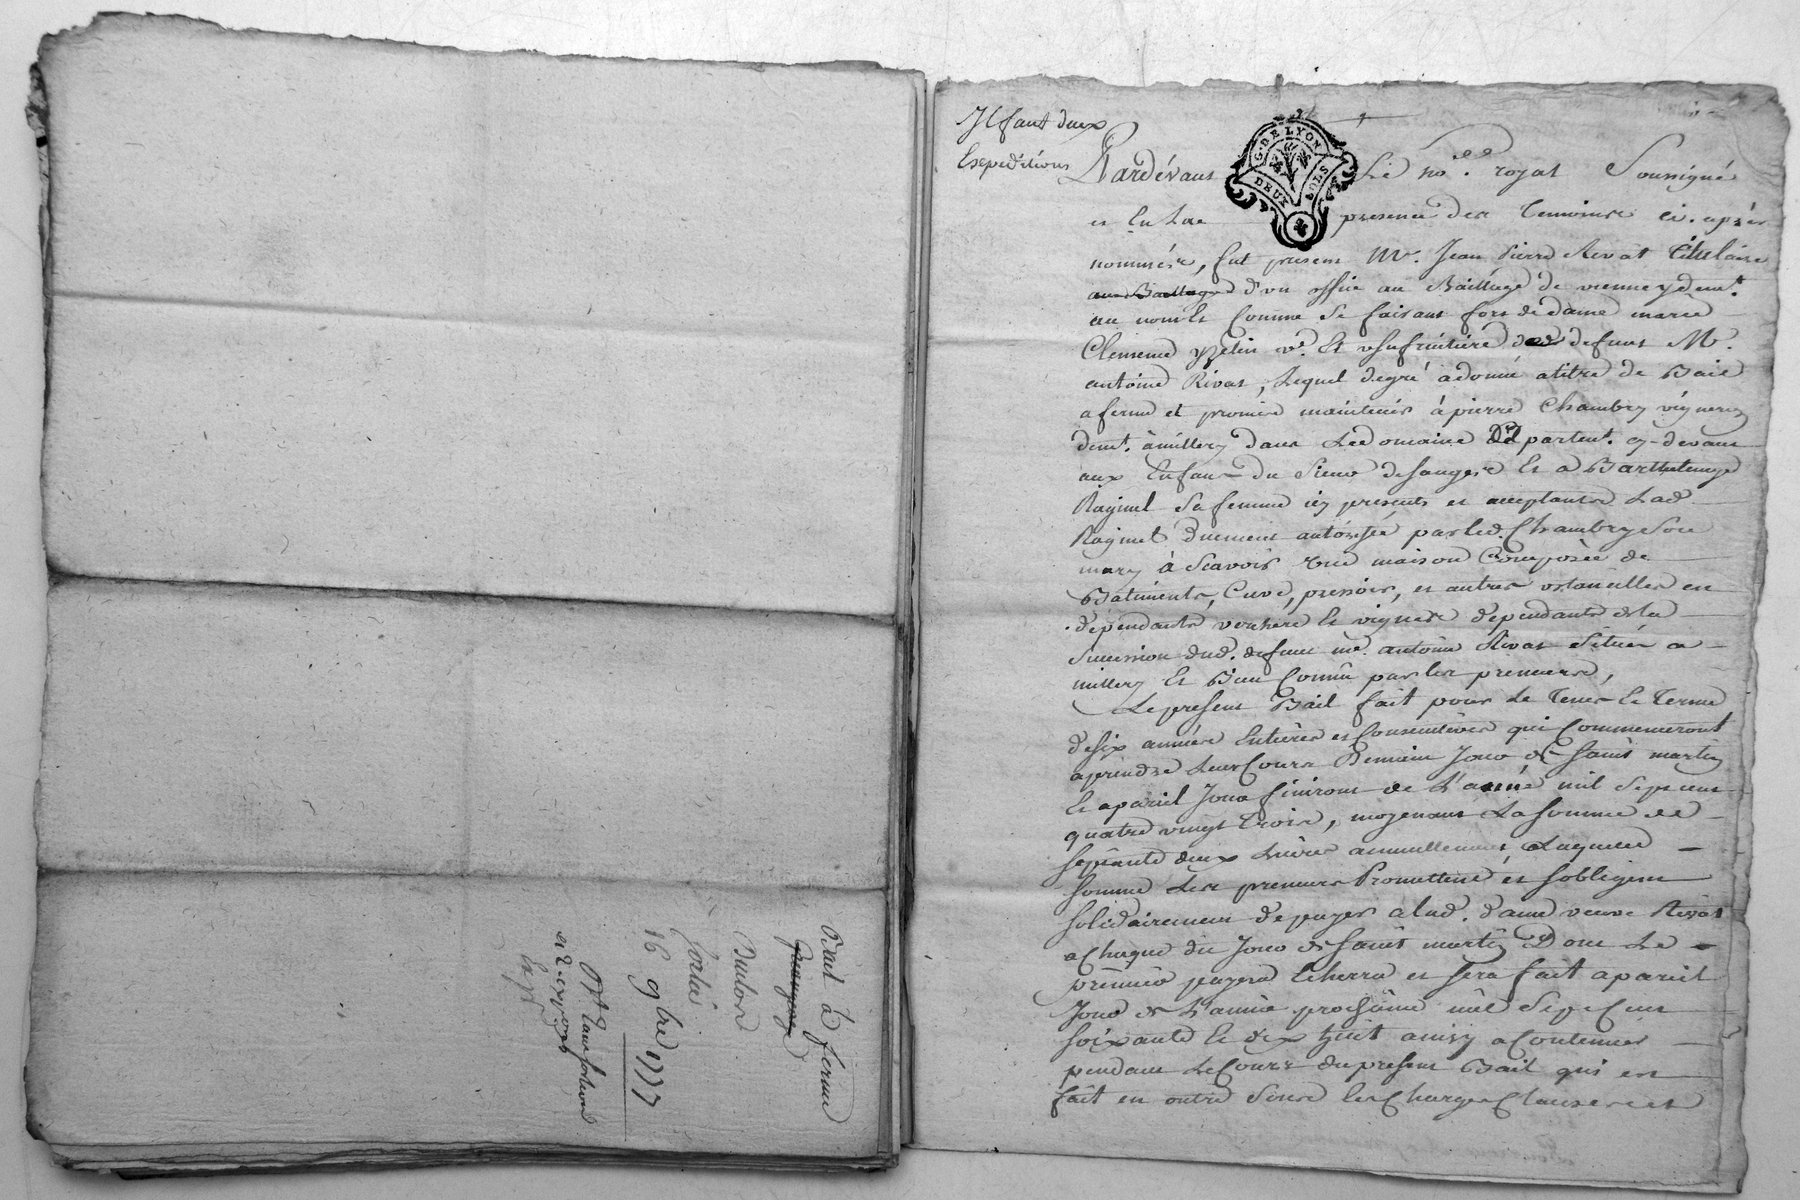 Bail à ferme
16 9bre 1777
Il faut deux
Expeditions
G. DE LYON
DEUX SOLS
Pardevant Le no.re royal Soussigné
et En La presence des Temoins ci. après
nommés, fut present Mr. Jean Pierre Rivat titulaire
d'un office au Bailliage de vienne y demt.
au nom et Comme Se faisant fort de dame marie
Clemence ve. Et usufruitiere de defunt Mr.
antoine Rivat, Lequel de gré à donné a titre de Bail
a ferme et promis maintenir à pierre Chambry vigneron
demt. à millery dans Le domaine partent. cy-devant
aux Enfans du Sieur desanges Et a Barthelemye
Raginel Sa femme icy presents et acceptants Lad
Raginel duement autorisée par led. Chambry Son
mary à Scavoir une maison Composée de
Batiments, Cuve, pressoir, et autres en
dépendants verchere Et vignes dependants de la
Succession dud. defunt me. antoine Rivat Située a
millery Et Bien Connu par les preneurs,
Le present Bail fait pour Le Tems Et Terme
de six années Entières et Consecutives qui Commenceront
aprendre Leur Cours Demain Jour de Saint martin
Et apareil Jour finiront de L'année mil Sept cent
quatre vingt trois, moyenant La Somme de
septante deux Livres annuellement Laquelle
somme Les preneurs Promettent et sobligent
solidairement de payer à lad. dame veuve Rivat
a Chaque dit Jour de Saint martin Dont Le
premier payera Echerra et sera fait apareil
Jour de L'année prochaine mil Sept Cent
soixante Et dix huit ainsy a Continuer
pendant Le Cours du present Bail qui est
fait en outre Sous les Charges Clauses et